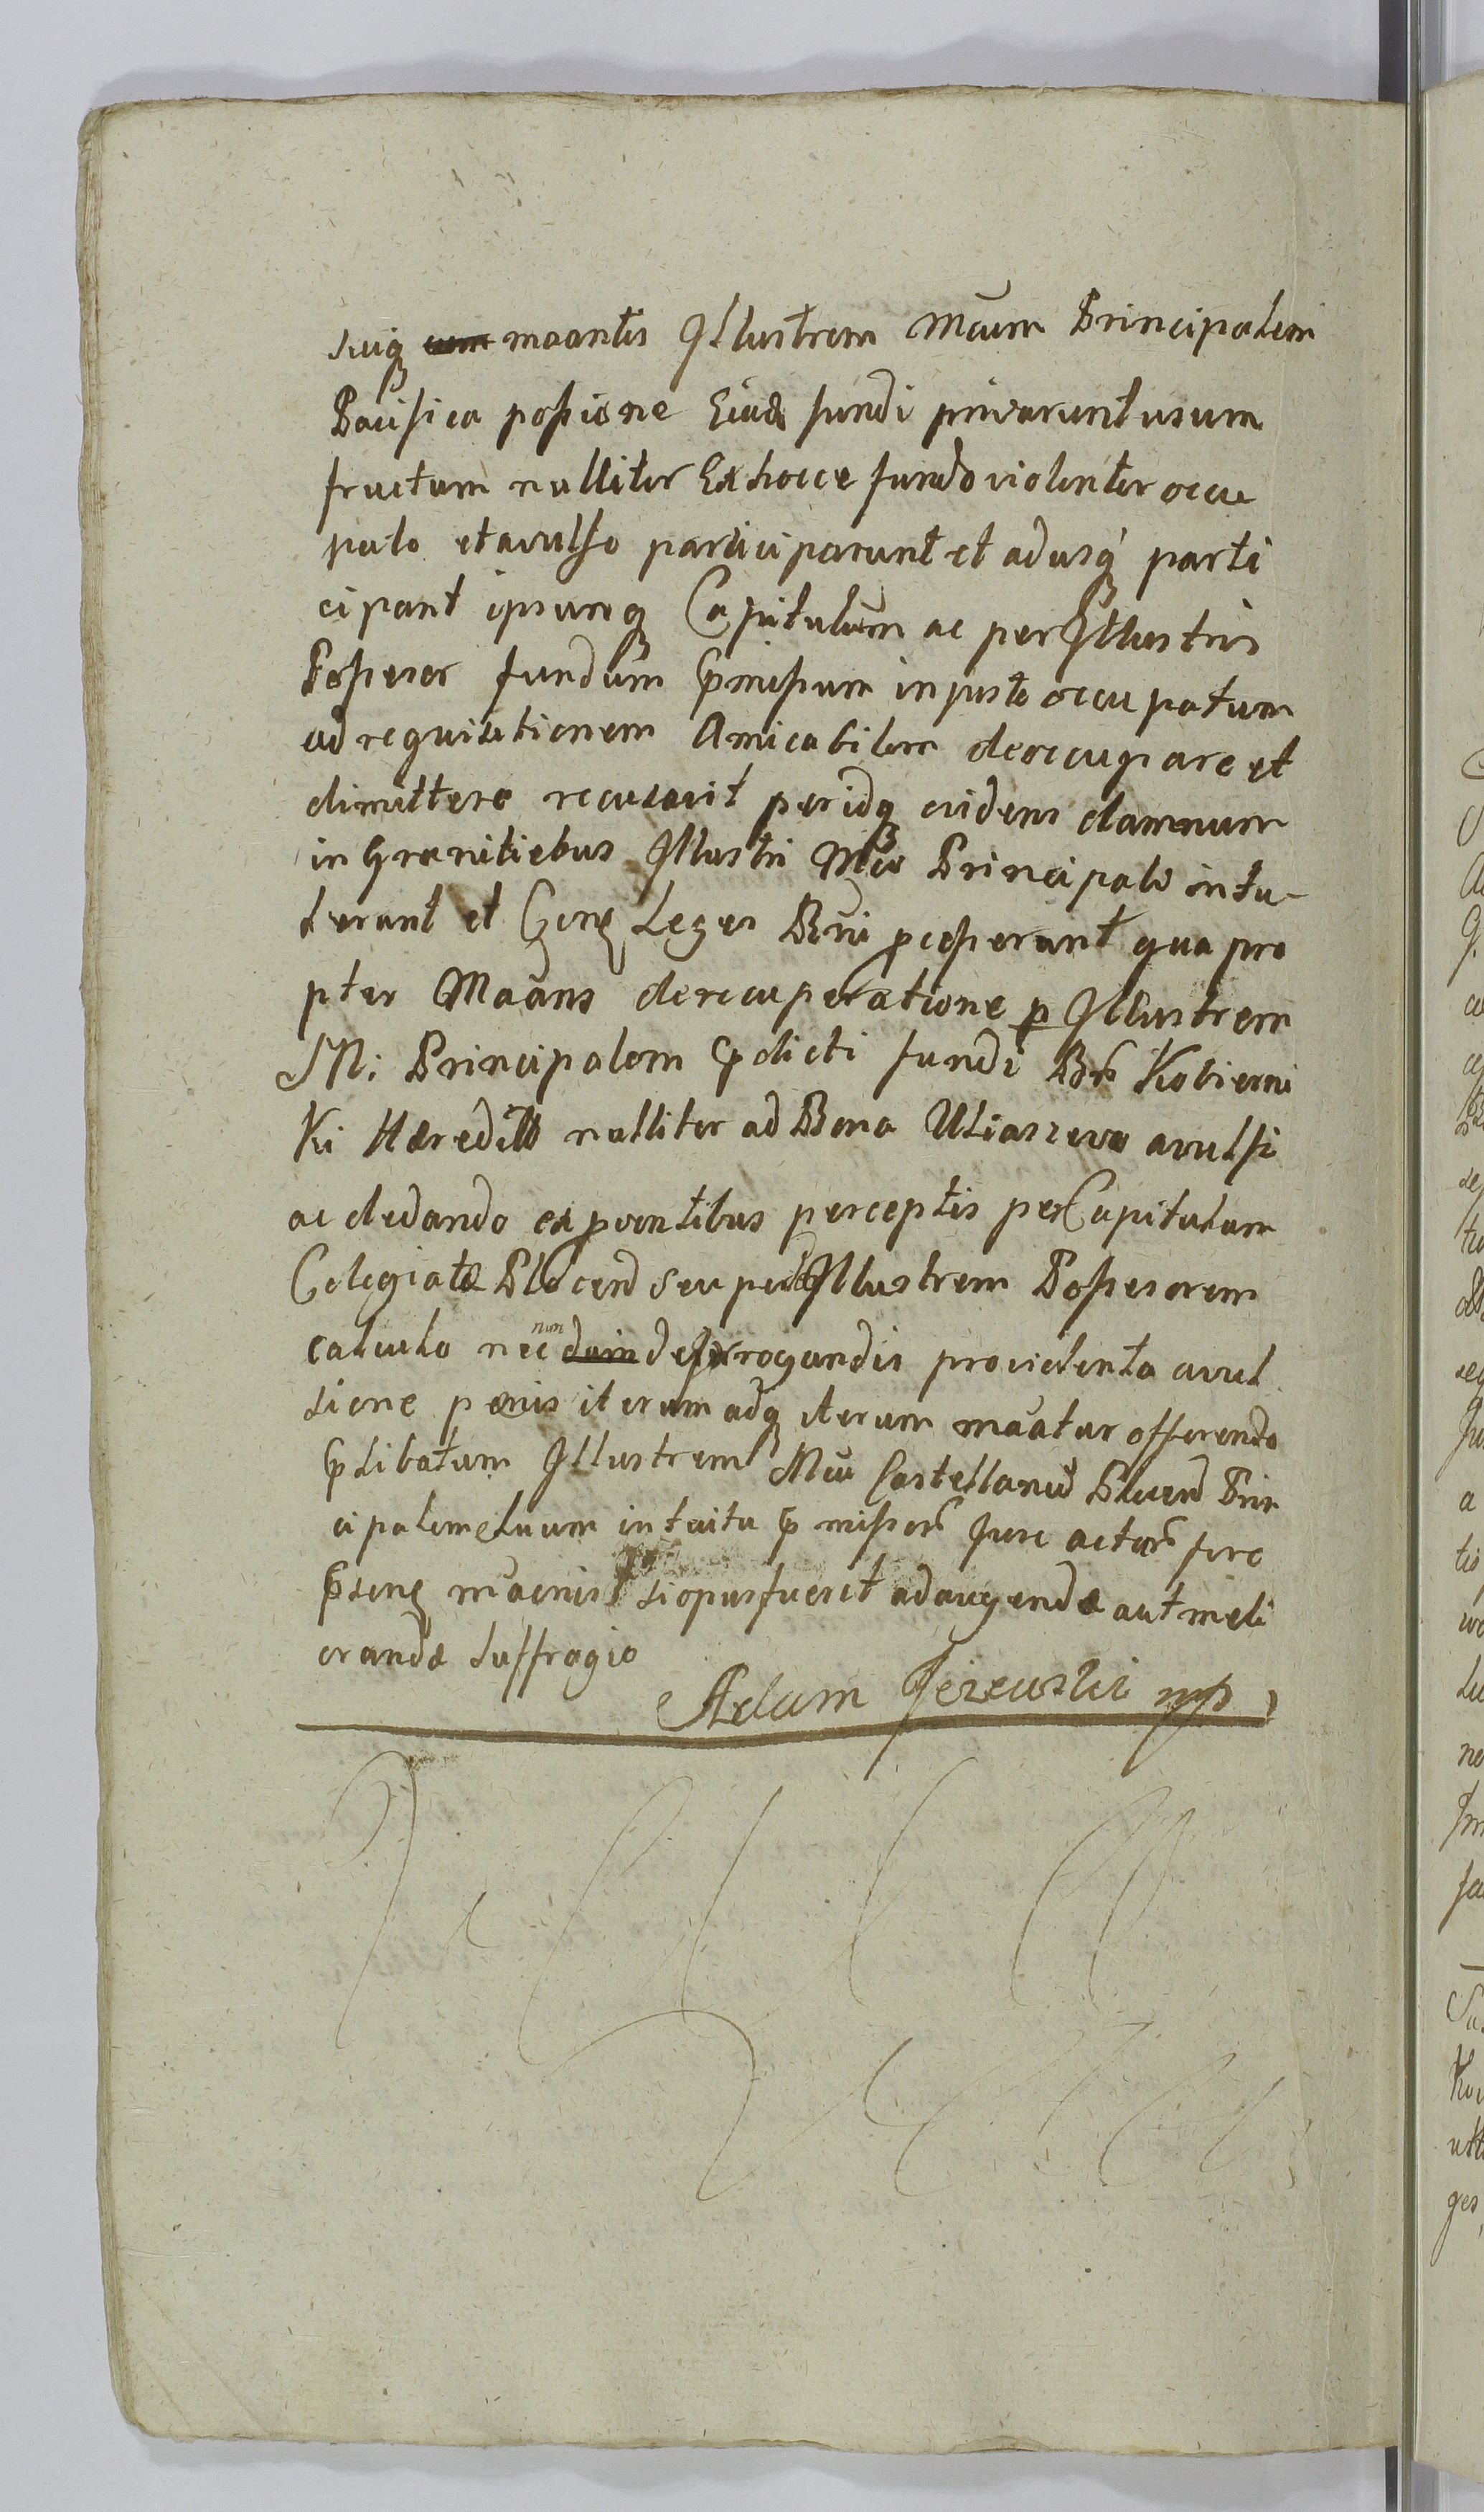 suiq maantis Illustrem Mcum Principalem
Pacifica possione Eiusd fundi privarunt usum
fructum nulliter Ex hocce fundo violenter occu
pato et avulso participarunt et adusq parti
cipant ipsumq Capitulum ac per Illustris
Possesor fundum pmissum injuste occupatum
ad requisitionem Amicabilem deoccupare et
dimittere recusavit per idq evidens damnum
in Granitiebus Illustri Mco Principali intu-
lerant et Leges qua pro
pter Maans de recuperatione p Illustrem
M: Principalem pdicti fundi Kobierni
Ki nulliter ad Bona Uliaszewo avulsi
ac de dando ex pventibus perceptis per Capitulum
Colegiatæ Plocen seu Illustrem Possesorem
calculo nec non de irrogandis pro violenta avul
sione pænis iterum adq iterum maatur offerendo
plibatum Illustrem Mcu Castellanu Plocen Prin
cipalem suum intuitu pmissor Jure actor fore
salva si opus fuerit adaugendæ aut meli
orandæ suffragio
Adam Jezewski mp